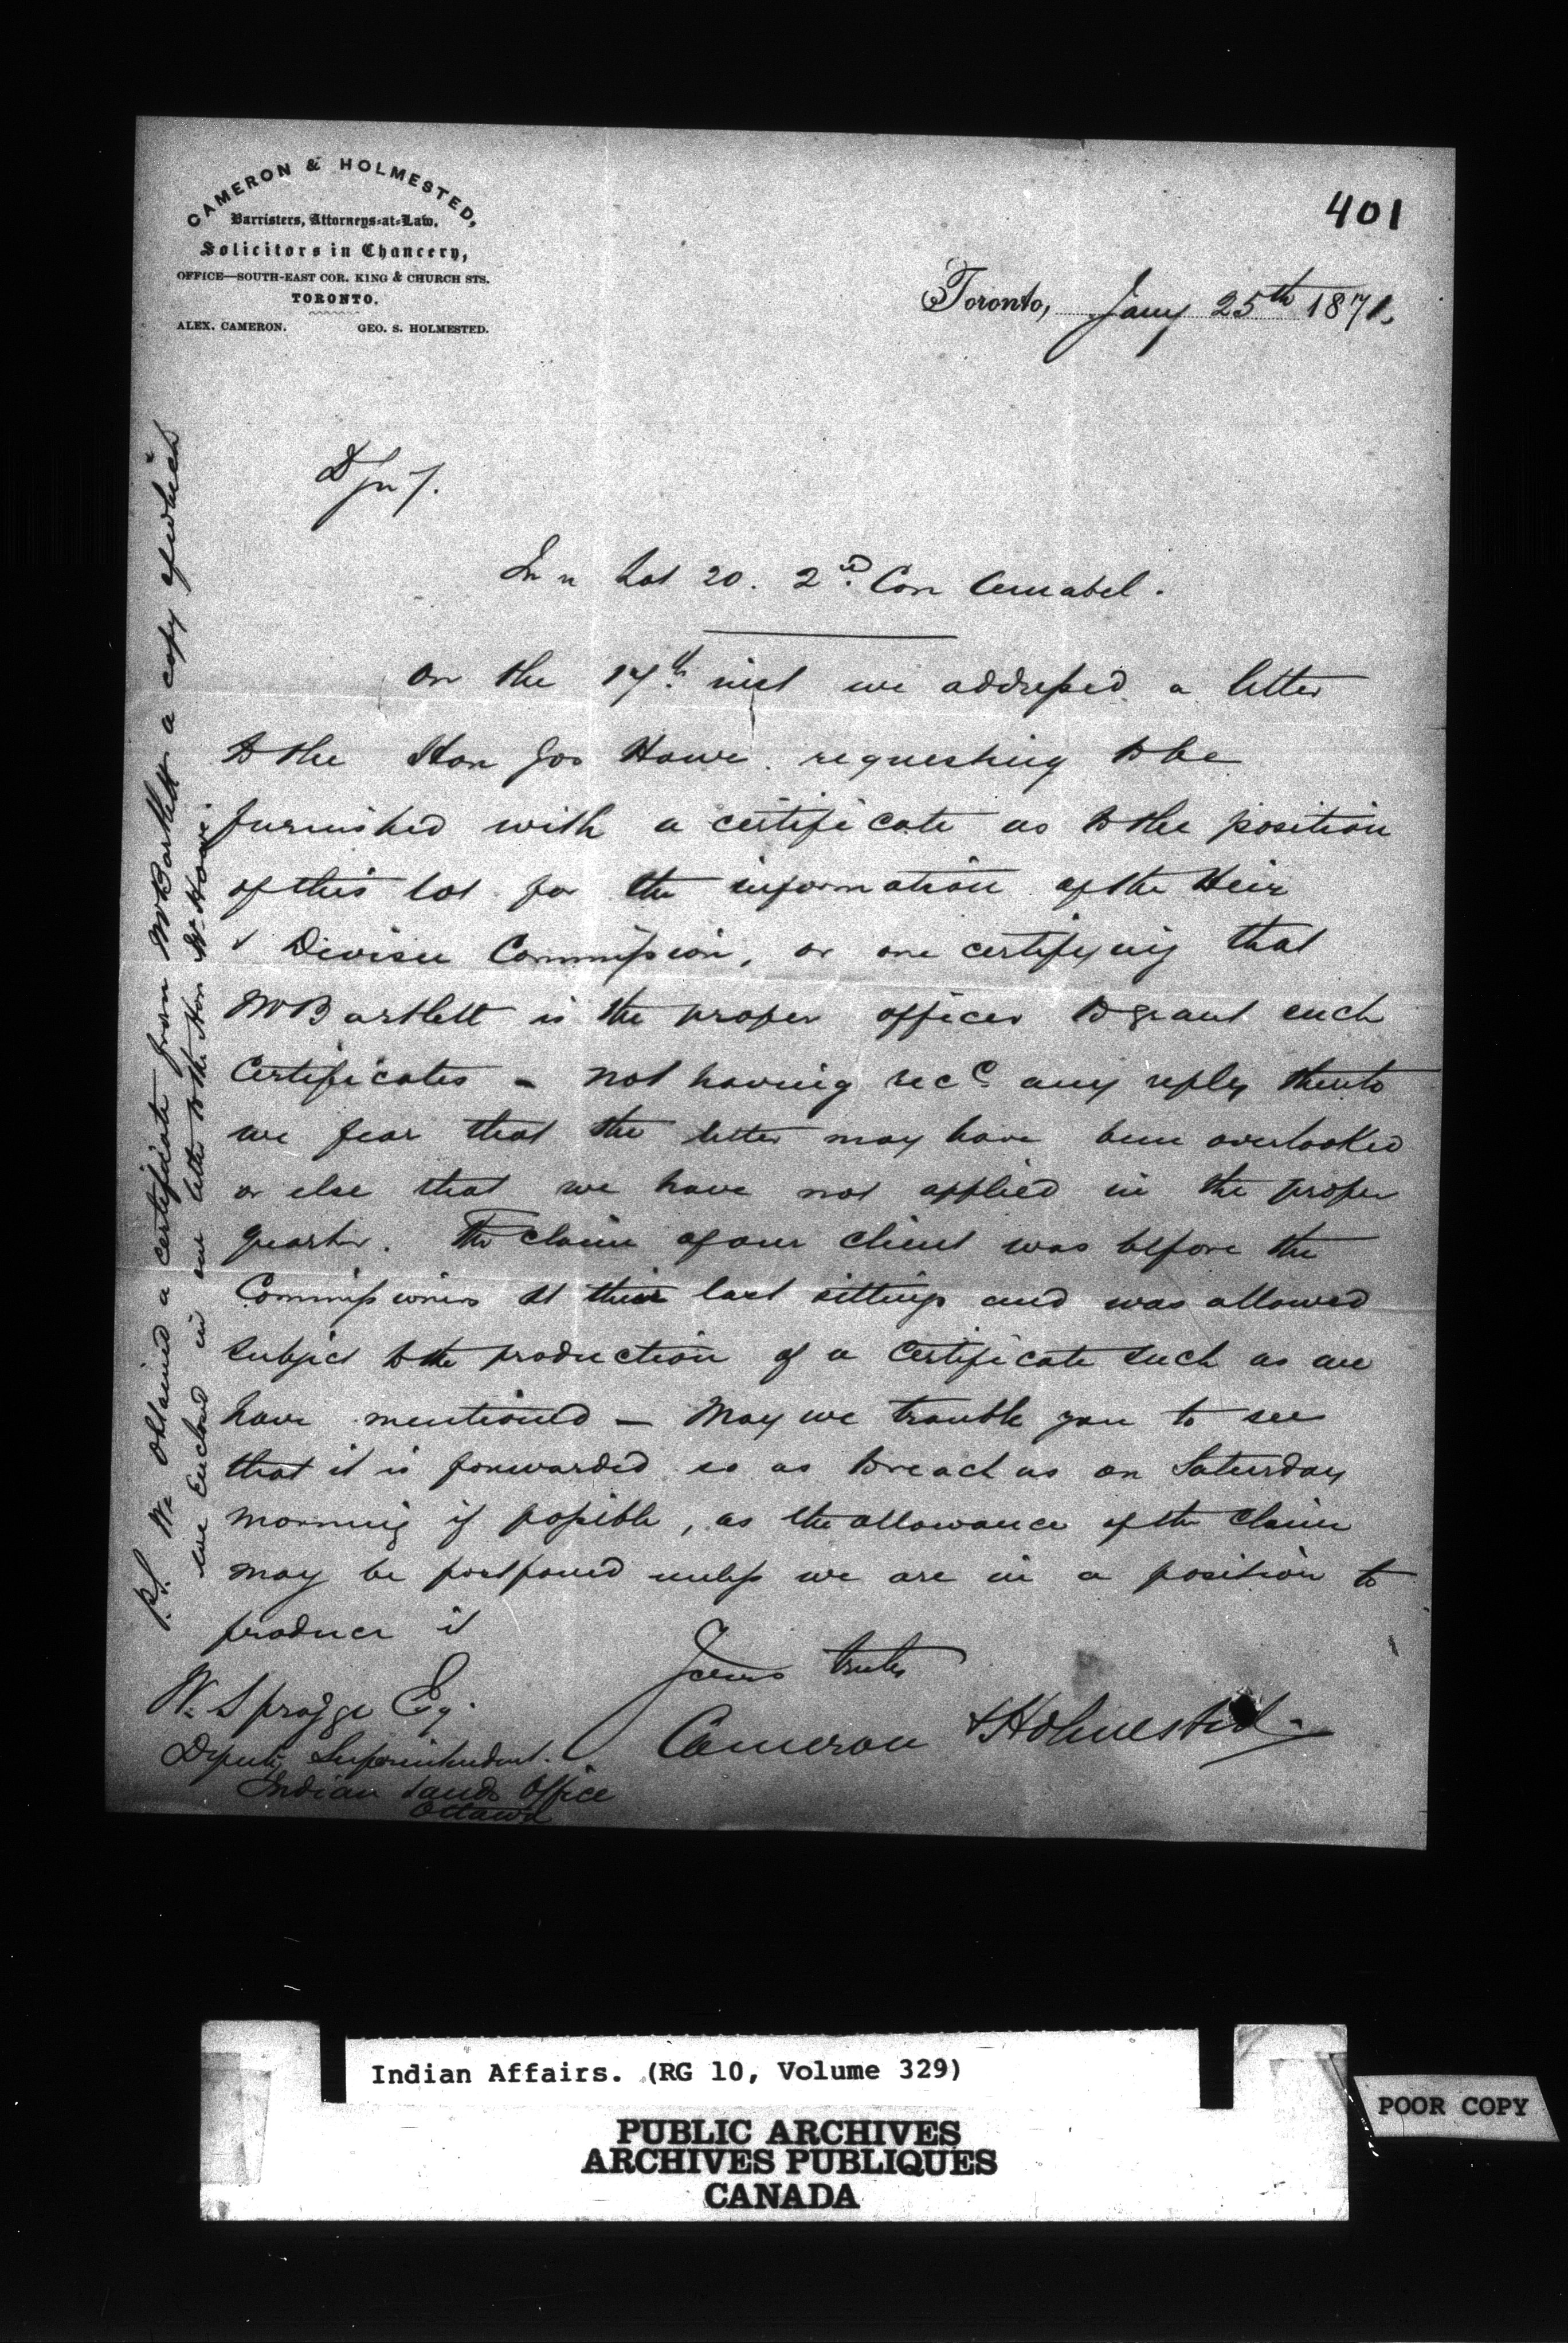 401
CAMERON & HOLMESTED,
Barristers, Attorneys-at-Law,
Solicitors in Chancery,
OFFICE—SOUTH-EAST COR. KING & CHURCH STS.
TORONTO.
ALEX. CAMERON. GEO. S. HOLMESTED.
Toronto, Jany 25th 1871.
D Sir
In re Lot 20. 2nd Con Amabel.
On the 17th inst we addressed a letter
to the Hon Jos Howe requesting to be
furnished with a certificate as to the position
of this lot for the information of the Heir
& Devisee Commission, or one certifying that
Mr Bartlett is the proper officer to grant such
Certificates - Not having recd any reply thereto
we fear that the letter may have been overlooked
or else that we have not applied in the proper
quarter. The claim of our client was before the
Commissioners at their last sittings and was allowed
subject to the production of a Certificate such as we
have mentioned - May we trouble you to see
that it is forwarded so as to reach us on Saturday
morning if possible, as the allowance of the claim
may be postponed unless we are in a position to
produce it
Yours truly
Cameron & Holmested.
W. Spragge Esq.
Deputy Superintendent.
Indian Lands Office
Ottawa
P.S. We obtained a certificate from Mr Bartlett a copy of which
we Enclosed in our letter to the Hon Mr Howe.
Indian Affairs. (RG 10, Volume 329)
PUBLIC ARCHIVES
ARCHIVES PUBLIQUES
CANADA
POOR COPY